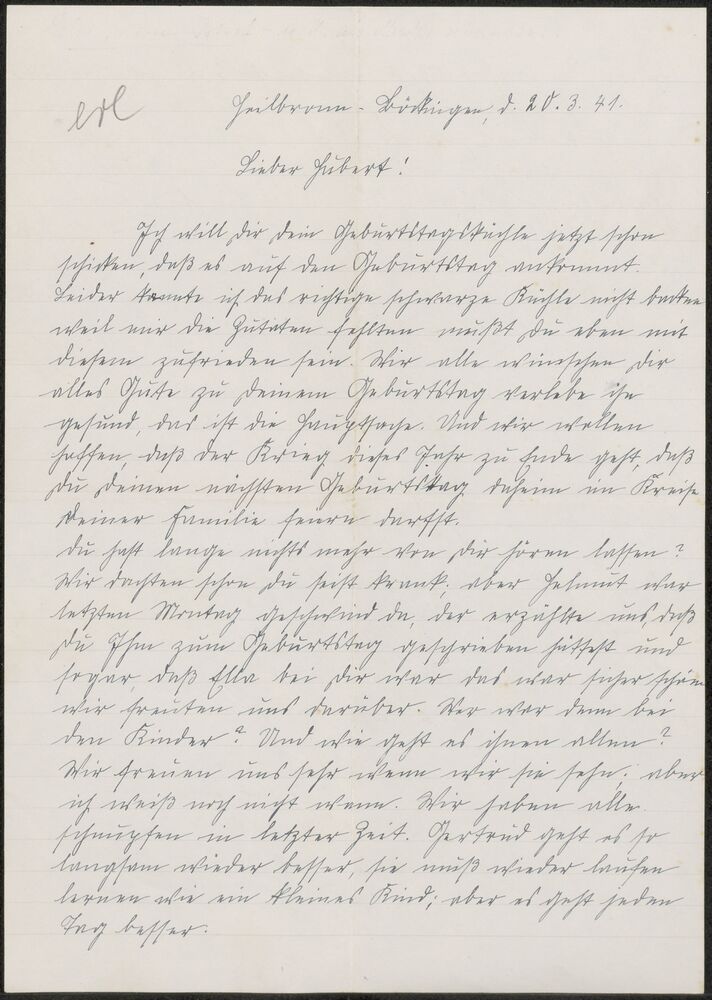 erl
Heilbronn-Böckingen, d. 20.3.41.
Lieber Hubert!
Ich will Dir Dein Geburtstagsküchle jetzt schon
schicken, daß es auf den Geburtstag ankommt.
Leider konnte ich das richtige schwarze Küchle nicht backen
weil mir die Zutaten fehlten mußt Du eben mit
diesem zufrieden sein. Wir alle wünschen Dir
alles Gute zu Deinem Geburtstag verlebe ihn
gesund, das ist die Hauptsache. Und wir wollen
hoffen, daß der Krieg dieses Jahr zu Ende geht, daß
Du Deinen nächsten Geburtstag daheim im Kreise
Deiner Familie feiern darfst.
Du hast lange nichts mehr von Dir hören lassen?
Wir dachten schon Du seist krank; aber Helmut war
letzten Montag geschwind da, der erzählte uns, daß
Du Ihm zum Geburtstag geschrieben hättest und
sogar, daß Ella bei Dir war das war sicher schön
wir freuten uns darüber. Wer war denn bei
den Kinder? Und wie geht es ihnen allen?
Wir freuen uns sehr wenn wir sie sehn; aber
ich weiß noch nicht wann. Wir haben alle
schnupfen in letzter Zeit. Gertrud geht es so
langsam wieder besser, sie muß wieder laufen
lernen wie ein kleines Kind; aber es geht jeden
Tag besser.